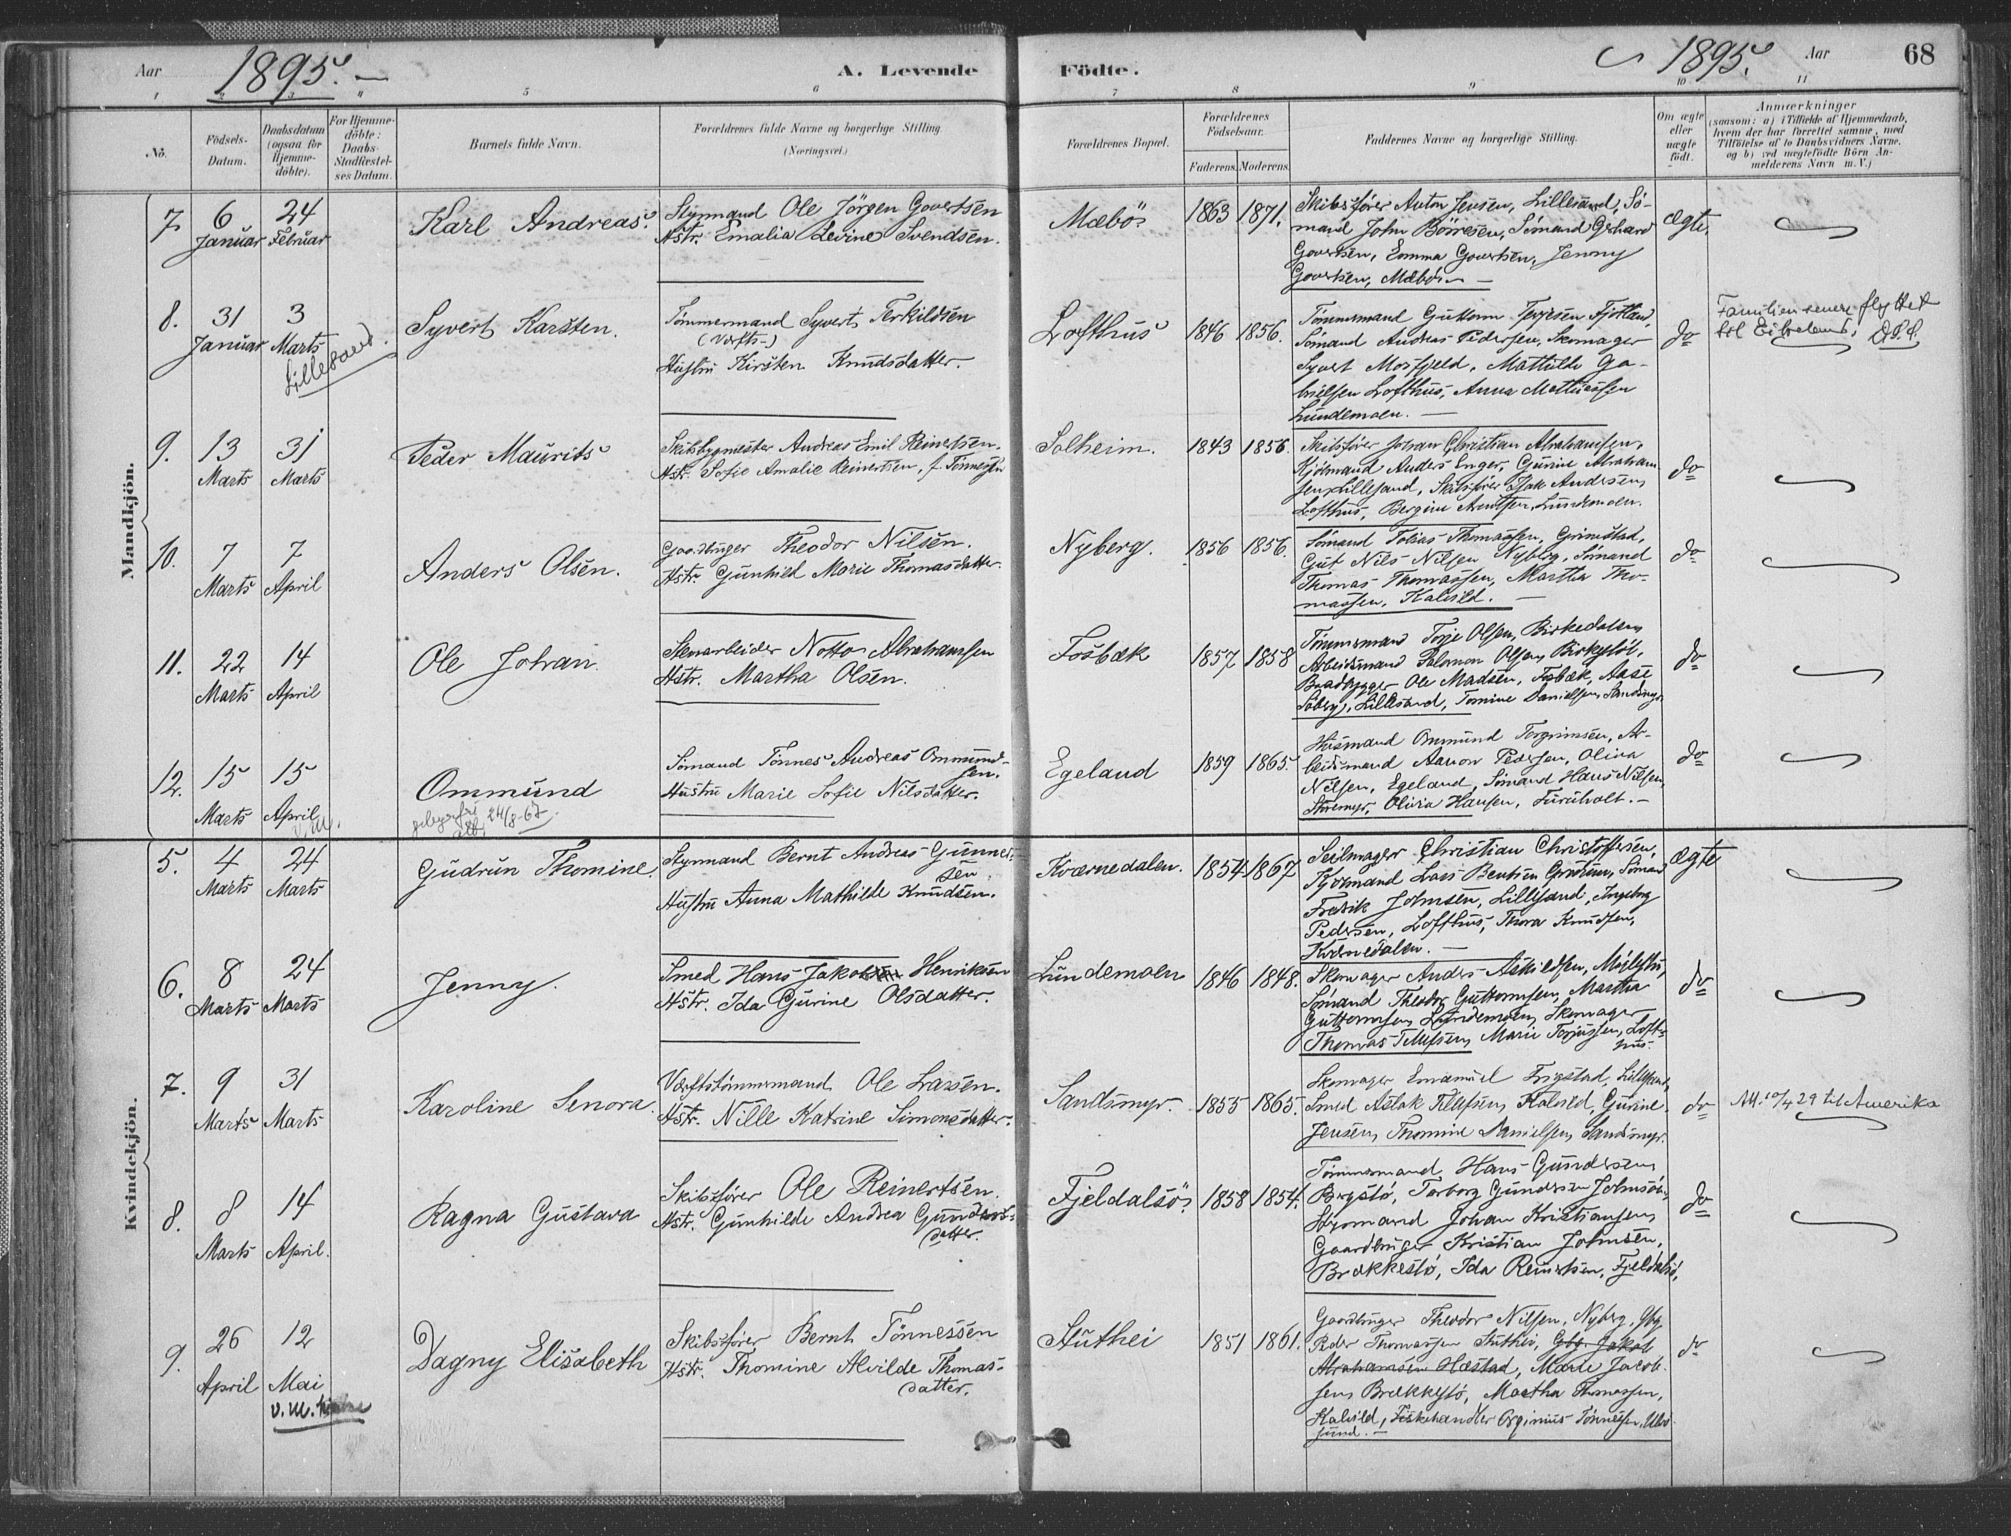 Aar 1895. —
A. Levende
Födte.
1895.
Aar
68
1 2 3 4 5 6 7 8 9 10 11
No.
Födsels-
Datum.
Daabsdatum
(ogsaa for
Hjemme-
döbte).
For Hjemme-
döbte:
Daabs-
Stadfæstel-
ses Datum.
Barnets fulde Navn.
Forældrenes fulde Navne og borgerlige Stilling
(Næringsvei.)
Forældrenes Bopæl.
Forældrenes
Födselsaar.
Faderens.
Moderens.
Faddernes Navne og borgerlige Stilling.
Om ægte
eller
uægte
født.
Anmærkninger
(saasom: a) i Tilfælde af Hjemmedaab,
hvem der har forrettet samme, med
Tilföielse af to Daabsvidners Navne.
og b) ved uægtefödte Börn An-
melderens Navn m. V.)
Mandkjön.
7. 6 Januar
24 Februar
Karl Andreas.
Styrmand Ole Jörgen Govertsen
Hstr. Emalia Levine Svendsen.
Mæbö
1863 1871.
Skibsförer Anton Jensen, Lillesand, Sö-
mand John Börresen, Sömand Gerhard
Govertsen, Emma Govertsen, Jenny
Govertsen, Mæbö. —
ægte.
8. 31 Januar
3 Marts
Lillesand.
Syvert Karsten.
Tömmermand Syvert Terkildsen
(Værfts-)
Hustru Kirsten Knudsdatter.
Lofthus
1846 1856.
Tömmermand Guttorm Terjesen Fjotland,
Sömand Andreas Pedersen, Skomager
Syvert Mosfjeld, Mathilde Ga-
brielsen Lofthus, Anna Mathiassen
Lundemoen. —
do
Familien senere flyttet
9. 13 Marts
31 Marts
Peder Maurits
Skibsbygmester Andreas Emil Reinertsen.
Hstr. Sofie Amalie Reinertsen, f. Tönnessen
Solheim.
1843 1856.
Skibsförer Johan Christian Abrahamsen,
Kjöbmand Anders Enger, Gurine Abraham-
sen, Lillesand, Skibsförer Isak Andersen,
Lofthus, Bergine Arentsen, Lundemoen.
do
10. 7 Marts
7 April
Anders Olsen.
Gaardbruger Theodor Nilsen.
Hstr. Gunhild Marie Thomasdatter.
Nyberg.
1856 1856.
Sömand Tobias Thomassen, Grimstad,
Gut Nils Nilsen Nyberg, Sömand
Thomas Thomassen, Martha Tho-
massen, Kalvild. —
do
11. 22 Marts
14 April
Ole Johan.
Stenarbeider Notto Abrahamsen
Hstr. Martha Olsen.
Fosbæk
1857 1858
Tömmermand Terje Olsen, Birkedalen,
Arbeidsmand Salomon Olsen,
Baadbygger Ole Madsen, Fosbæk, Aase
Söberg, Lillesand, Tomine Danielsen, Sandsmyr.
do
12. 15 Marts
15 April
Ommund
24/8-67
Sömand Tönnes Andreas Ommund-
sen.
Hustru Marie Sofie Nilsdatter.
Egeland
1859 1865.
Husmand Ommund Torgrimsen, Ar-
beidsmand Aanon Pedersen, Olina
Nilsen, Egeland, Sömand Hans Nilsen,
Olivia Hansen, Furuholt. —
do
Kvindekjön.
5. 4 Marts
24 Marts
Gudrun Thomine.
Styrmand Bernt Andreas Gunner-
sen.
Hustru Anna Mathilde Knudsen.
Kværnedalen.
1854 1867
Seilmager Christian Christoffersen,
Fredrik Johnsen, Lillesand, Ingeborg
Pedersen, Lofthus, Thora Knudsen,
Kværnedalen. —
ægte
6. 8 Marts
24 Marts
Jenny.
Smed Hans Jakob Henriksen
Hstr. Ida Gurine Olsdatter.
Lundemoen
1846 1848.
Skomager Anders Askildsen,
Sömand Theodor Guttormsen, Martha
Guttormsen, Lundemoen, Skomager
Thomas Tellefsen, Marie Terjussen, Loft-
hus.
do
7. 9 Marts
31 Marts
Karoline Lenora.
Værftstömmermand Ole Larsen.
Hstr. Nille Katrine Simonsdatter.
Sandsmyr.
1855 1865.
Skomager Emanuel Frigstad, Lillesand,
Smed Aslak Tellefsen, Kalvild, Gurine
Jensen, Thomine Danielsen, Sandsmyr.
do
29 til Amerika
8. 8 Marts
14 April.
Ragna Gustava
Skibsförer Ole Reinertsen.
Hstr. Gunhilde Andrea Gunders-
datter.
Fjeldalsö
1858 1854.
Tömmermand Hans Gundersen,
Torborg Gundersen
Styrmand Johan Kristiansen,
Gaardbruger Kristian Johnsen,
Brækkestö, Ida Reinertsen, Fjeldalsö.
do
9. 26 April
12 Mai
v. M. kirke
Dagny Elisabeth
Skibsförer Bernt Tönnessen
Hstr. Thomine Alvilde Thomas-
datter.
Stuthei
1851 1861.
Gaardbruger Theodor Nilsen, Nyberg, Gbg.
Peder Thomassen Stuthei, Gbg. Jakob
Abrahamsen Hæstad, Marte Jacob-
sen, Brækkestö, Martha Thomassen,
Kalvild, Fiskehandler Orginius Tönnesen, Ulvö-
sund. —
do